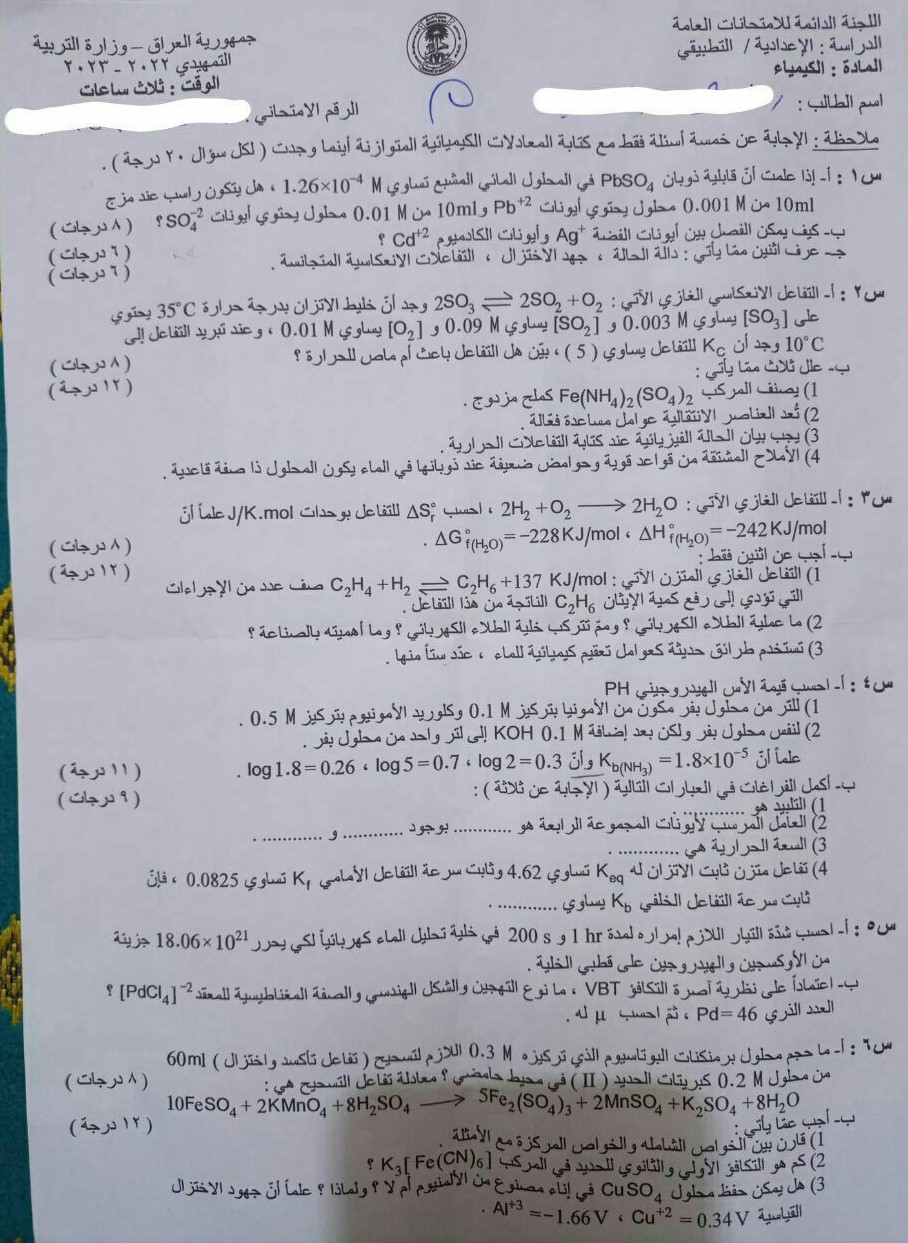 اللجنة الدائمة للامتحانات العامة
الدراسة : الإعدادية / التطبيقي
المادة : الكيمياء
اسم الطالب :
جمهورية العراق – وزارة التربية
التمهيدي ٢٠٢٢ – ٢٠٢٣
الوقت : ثلاث ساعات
الرقم الامتحاني :
ملاحظة : الإجابة عن خمسة أسئلة فقط مع كتابة المعادلات الكيميائية المتوازنة أينما وجدت ( لكل سؤال ٢٠ درجة ) .
س١ : أ- إذا علمت أنّ قابلية ذوبان PbSO₄ في المحلول المائي المشبع تساوي 1.26×10⁻⁴ M ، هل يتكون راسب عند مزج
10ml من 0.001 M محلول يحتوي أيونات Pb⁺² و 10ml من 0.01 M محلول يحتوي أيونات SO₄⁻² ؟ ( ٨ درجات )
ب- كيف يمكن الفصل بين أيونات الفضة Ag⁺ وأيونات الكادميوم Cd⁺² ؟ ( ٦ درجات )
جـ- عرف اثنين ممّا يأتي : دالة الحالة ، جهد الاختزال ، التفاعلات الانعكاسية المتجانسة . ( ٦ درجات )
س٢ : أ- التفاعل الانعكاسي الغازي الآتي : 2SO₃ ⇌ 2SO₂ + O₂ وجد أنّ خليط الاتزان بدرجة حرارة 35°C يحتوي
على [SO₃] يساوي 0.003 M و [SO₂] يساوي 0.09 M و [O₂] يساوي 0.01 M ، وعند تبريد التفاعل إلى
10°C وجد أن K꜀ للتفاعل يساوي ( 5 ) ، بيّن هل التفاعل باعث أم ماص للحرارة ؟ ( ٨ درجات )
ب- علل ثلاث ممّا يأتي : ( ١٢ درجة )
1) يصنف المركب Fe(NH₄)₂(SO₄)₂ كملح مزدوج .
2) تُعد العناصر الانتقالية عوامل مساعدة فعّالة .
3) يجب بيان الحالة الفيزيائية عند كتابة التفاعلات الحرارية .
4) الأملاح المشتقة من قواعد قوية وحوامض ضعيفة عند ذوبانها في الماء يكون المحلول ذا صفة قاعدية .
س٣ : أ- للتفاعل الغازي الآتي : 2H₂ + O₂ ⟶ 2H₂O ، احسب ΔS°ᵣ للتفاعل بوحدات J/K.mol علماً أنّ
ΔH°f(H₂O) = −242 KJ/mol ، ΔG°f(H₂O) = −228 KJ/mol . ( ٨ درجات )
ب- أجب عن اثنين فقط : ( ١٢ درجة )
1) التفاعل الغازي المتزن الآتي : C₂H₄ + H₂ ⇌ C₂H₆ +137 KJ/mol صف عدد من الإجراءات
التي تؤدي إلى رفع كمية الإيثان C₂H₆ الناتجة من هذا التفاعل .
2) ما عملية الطلاء الكهربائي ؟ وممّ تتركب خلية الطلاء الكهربائي ؟ وما أهميته بالصناعة ؟
3) تستخدم طرائق حديثة كعوامل تعقيم كيميائية للماء ، عدّد ستاً منها .
س٤ : أ- احسب قيمة الأس الهيدروجيني PH
1) للتر من محلول بفر مكون من الأمونيا بتركيز 0.1 M وكلوريد الأمونيوم بتركيز 0.5 M .
2) لنفس محلول بفر ولكن بعد إضافة 0.1 M KOH إلى لتر واحد من محلول بفر .
علماً أنّ Kb(NH₃) = 1.8×10⁻⁵ وأنّ log 2 = 0.3 ، log 5 = 0.7 ، log 1.8 = 0.26 . ( ١١ درجة )
ب- أكمل الفراغات في العبارات التالية ( الإجابة عن ثلاثة ) : ( ٩ درجات )
1) التلبيد هو ............ .
2) العامل المرسب لأيونات المجموعة الرابعة هو ............ بوجود ............ و ............ .
3) السعة الحرارية هي ............ .
4) تفاعل متزن ثابت الاتزان له Keq تساوي 4.62 وثابت سرعة التفاعل الأمامي Kf تساوي 0.0825 ، فإنّ
ثابت سرعة التفاعل الخلفي Kb يساوي ............ .
س٥ : أ- احسب شدّة التيار اللازم إمراره لمدة 1 hr و 200 s في خلية تحليل الماء كهربائياً لكي يحرر 18.06×10²¹ جزيئة
من الأوكسجين والهيدروجين على قطبي الخلية .
ب- اعتماداً على نظرية آصرة التكافؤ VBT ، ما نوع التهجين والشكل الهندسي والصفة المغناطيسية للمعقد [PdCl₄]⁻² ؟
العدد الذري Pd= 46 ، ثمّ احسب μ له .
س٦ : أ- ما حجم محلول برمنكنات البوتاسيوم الذي تركيزه 0.3 M اللازم لتسحيح ( تفاعل تأكسد واختزال ) 60ml
من محلول 0.2 M كبريتات الحديد ( II ) في محيط حامضي ؟ معادلة تفاعل التسحيح هي : ( ٨ درجات )
10FeSO₄ + 2KMnO₄ +8H₂SO₄ ⟶ 5Fe₂(SO₄)₃ + 2MnSO₄ +K₂SO₄ +8H₂O
ب- أجب عمّا يأتي : ( ١٢ درجة )
1) قارن بين الخواص الشامله والخواص المركزة مع الأمثلة .
2) كم هو التكافؤ الأولي والثانوي للحديد في المركب K₃[ Fe(CN)₆] ؟
3) هل يمكن حفظ محلول CuSO₄ في إناء مصنوع من الألمنيوم أم لا ؟ ولماذا ؟ علماً أنّ جهود الاختزال
القياسية Cu⁺² = 0.34 V ، Al⁺³ =−1.66 V .